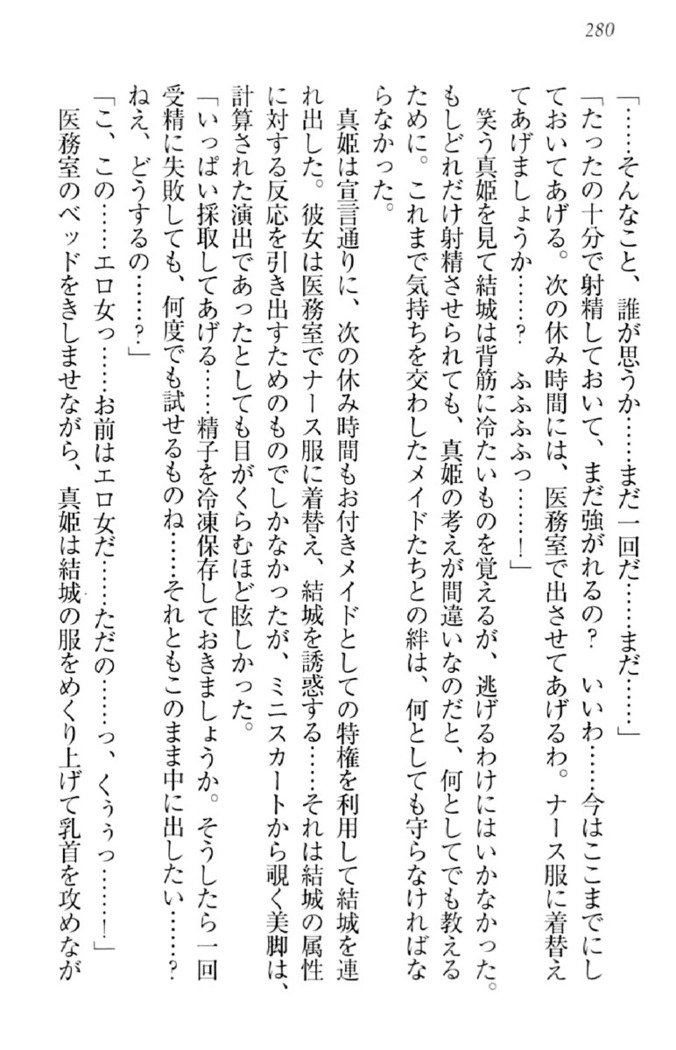 280
「……そんなこと、誰が思うか……まだ一回だ……まだ……」
「たったの十分で射精しておいて、まだ強がれるの？　いいわ……今はここまでにし
ておいてあげる。次の休み時間には、医務室で出させてあげるわ。ナース服に着替え
てあげましょうか……？　ふふふふっ……！」
笑う真姫を見て結城は背筋に冷たいものを覚えるが、逃げるわけにはいかなかった。
もしどれだけ射精させられても、真姫の考えが間違いなのだと、何としてでも教える
ために。これまで気持ちを交わしたメイドたちとの絆は、何としても守らなければな
らなかった。
真姫は宣言通りに、次の休み時間もお付きメイドとしての特権を利用して結城を連
れ出した。彼女は医務室でナース服に着替え、結城を誘惑する……それは結城の属性
に対する反応を引き出すためのものでしかなかったが、ミニスカートから覗く美脚は、
計算された演出であったとしても目がくらむほど眩しかった。
「いっぱい採取してあげる……精子を冷凍保存しておきましょうか。そうしたら一回
受精に失敗しても、何度でも試せるものね……それともこのまま中に出したい……？
ねえ、どうするの……？」
「こ、この……エロ女っ……お前はエロ女だ……ただの……っ、くぅぅっ……！」
医務室のベッドをきしませながら、真姫は結城の服をめくり上げて乳首を攻めなが